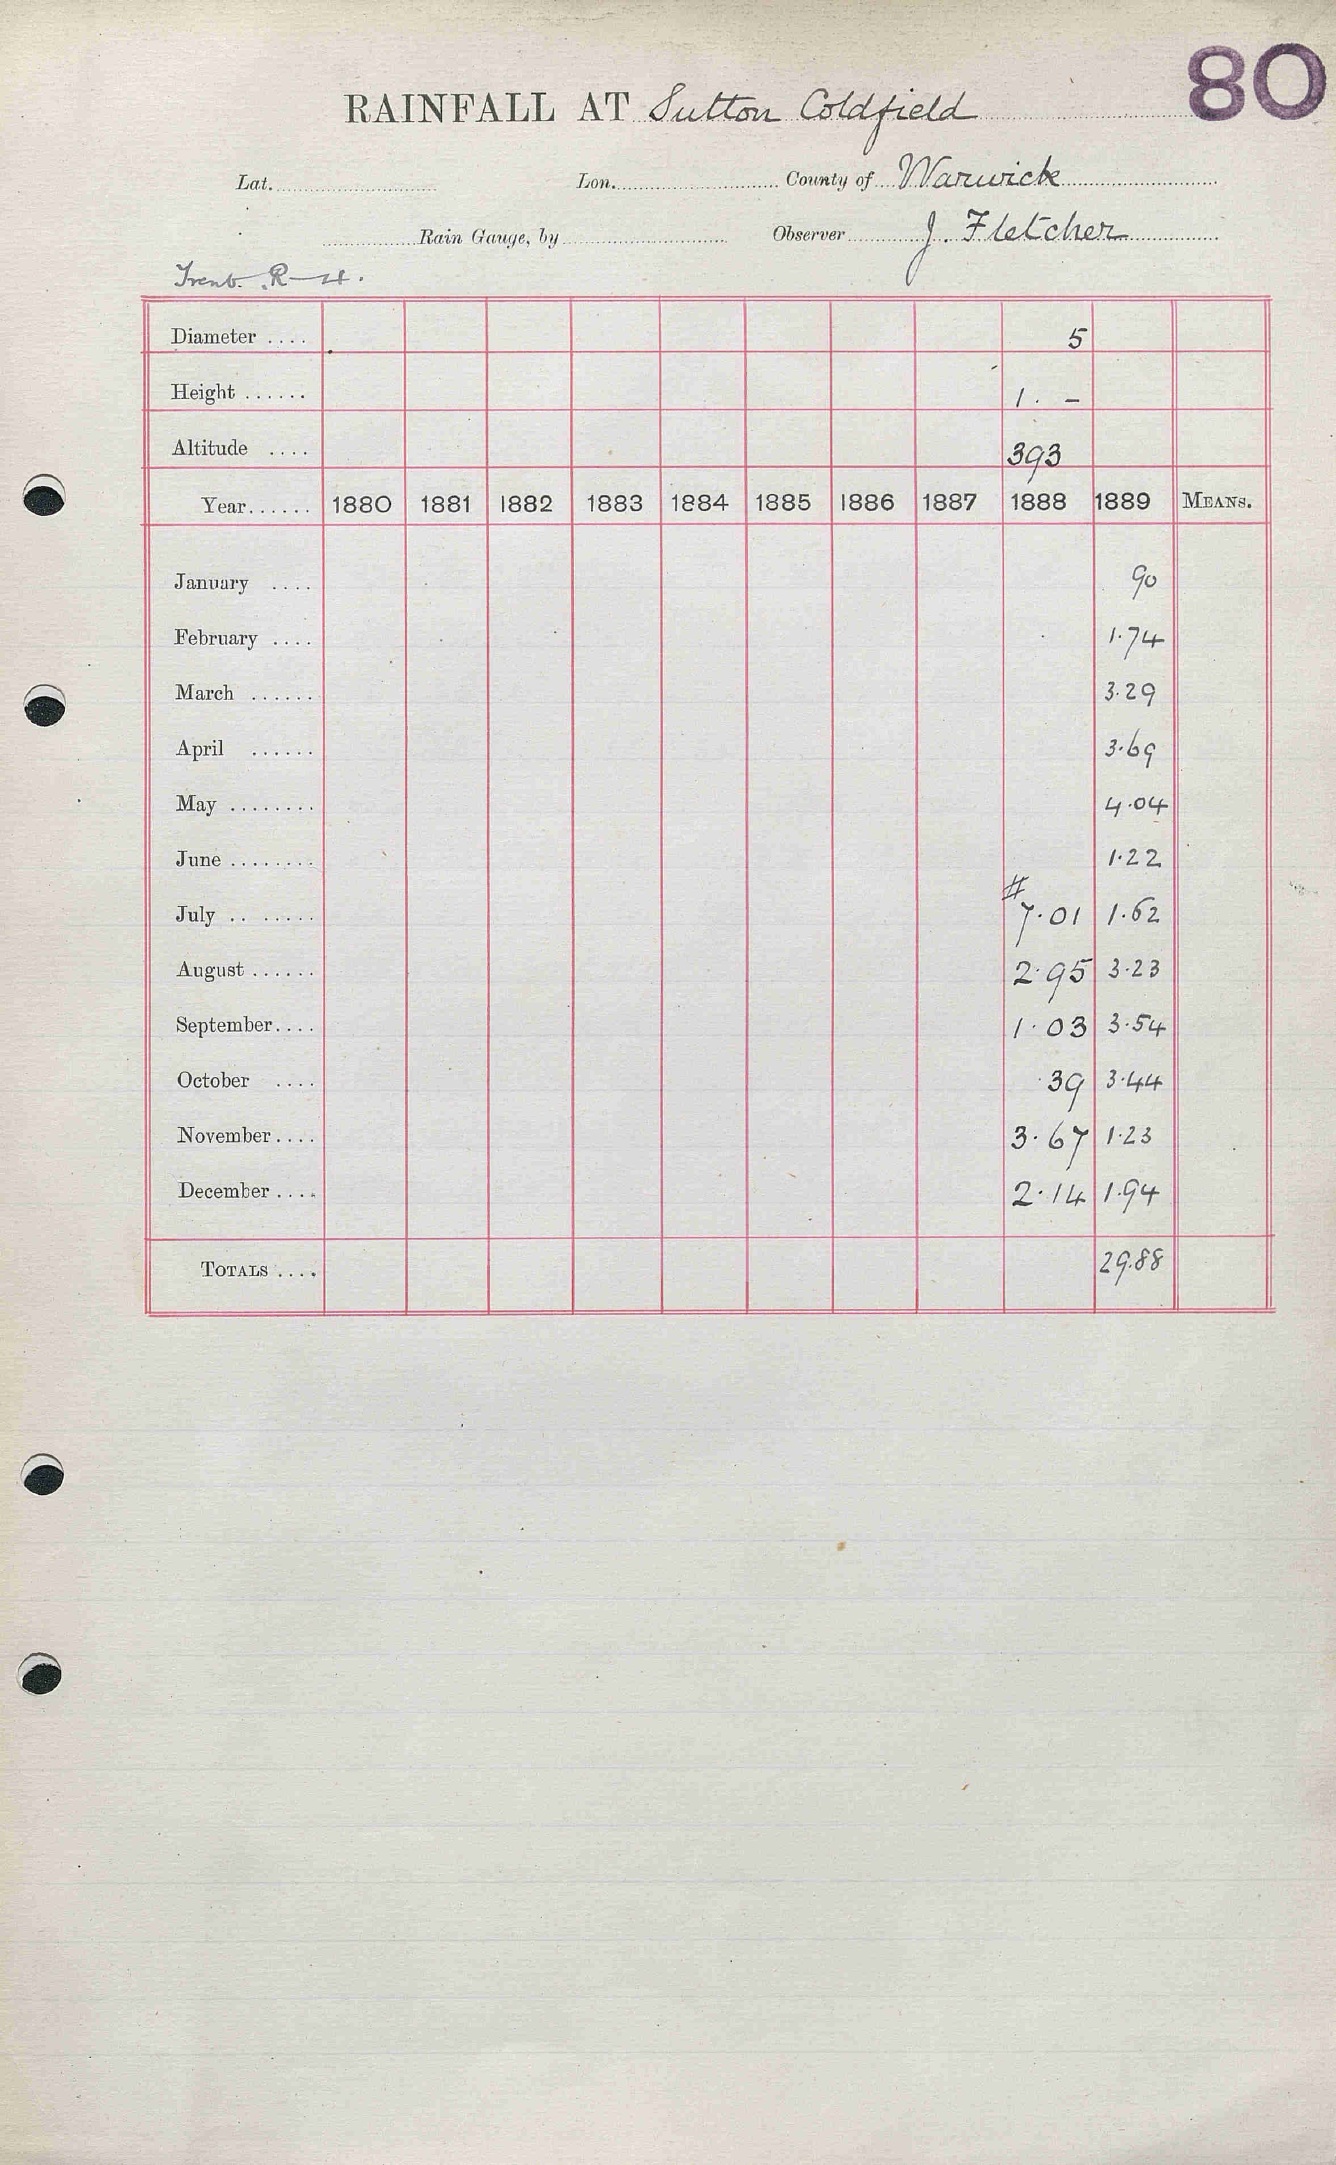 80
RAINFALL AT Sutton Coldfield
Lat. Lon. County of Warwick
Rain Gauge, by Observer J. Fletcher
Trent. R-4.
Diameter .... 5
Height ...... 1. -
Altitude .... 393
Year...... 1880 1881 1882 1883 1884 1885 1886 1887 1888 1889 MEANS.
January .... 90
February .... 1.74
March ...... 3.29
April ...... 3.69
May ........ 4.04
June ........ 1.22
#
July .. ...... 7.01 1.62
August ...... 2.95 3.23
September.... 1.03 3.54
October .... .39 3.44
November.... 3.67 1.23
December.... 2.14 1.94
TOTALS .... 29.88